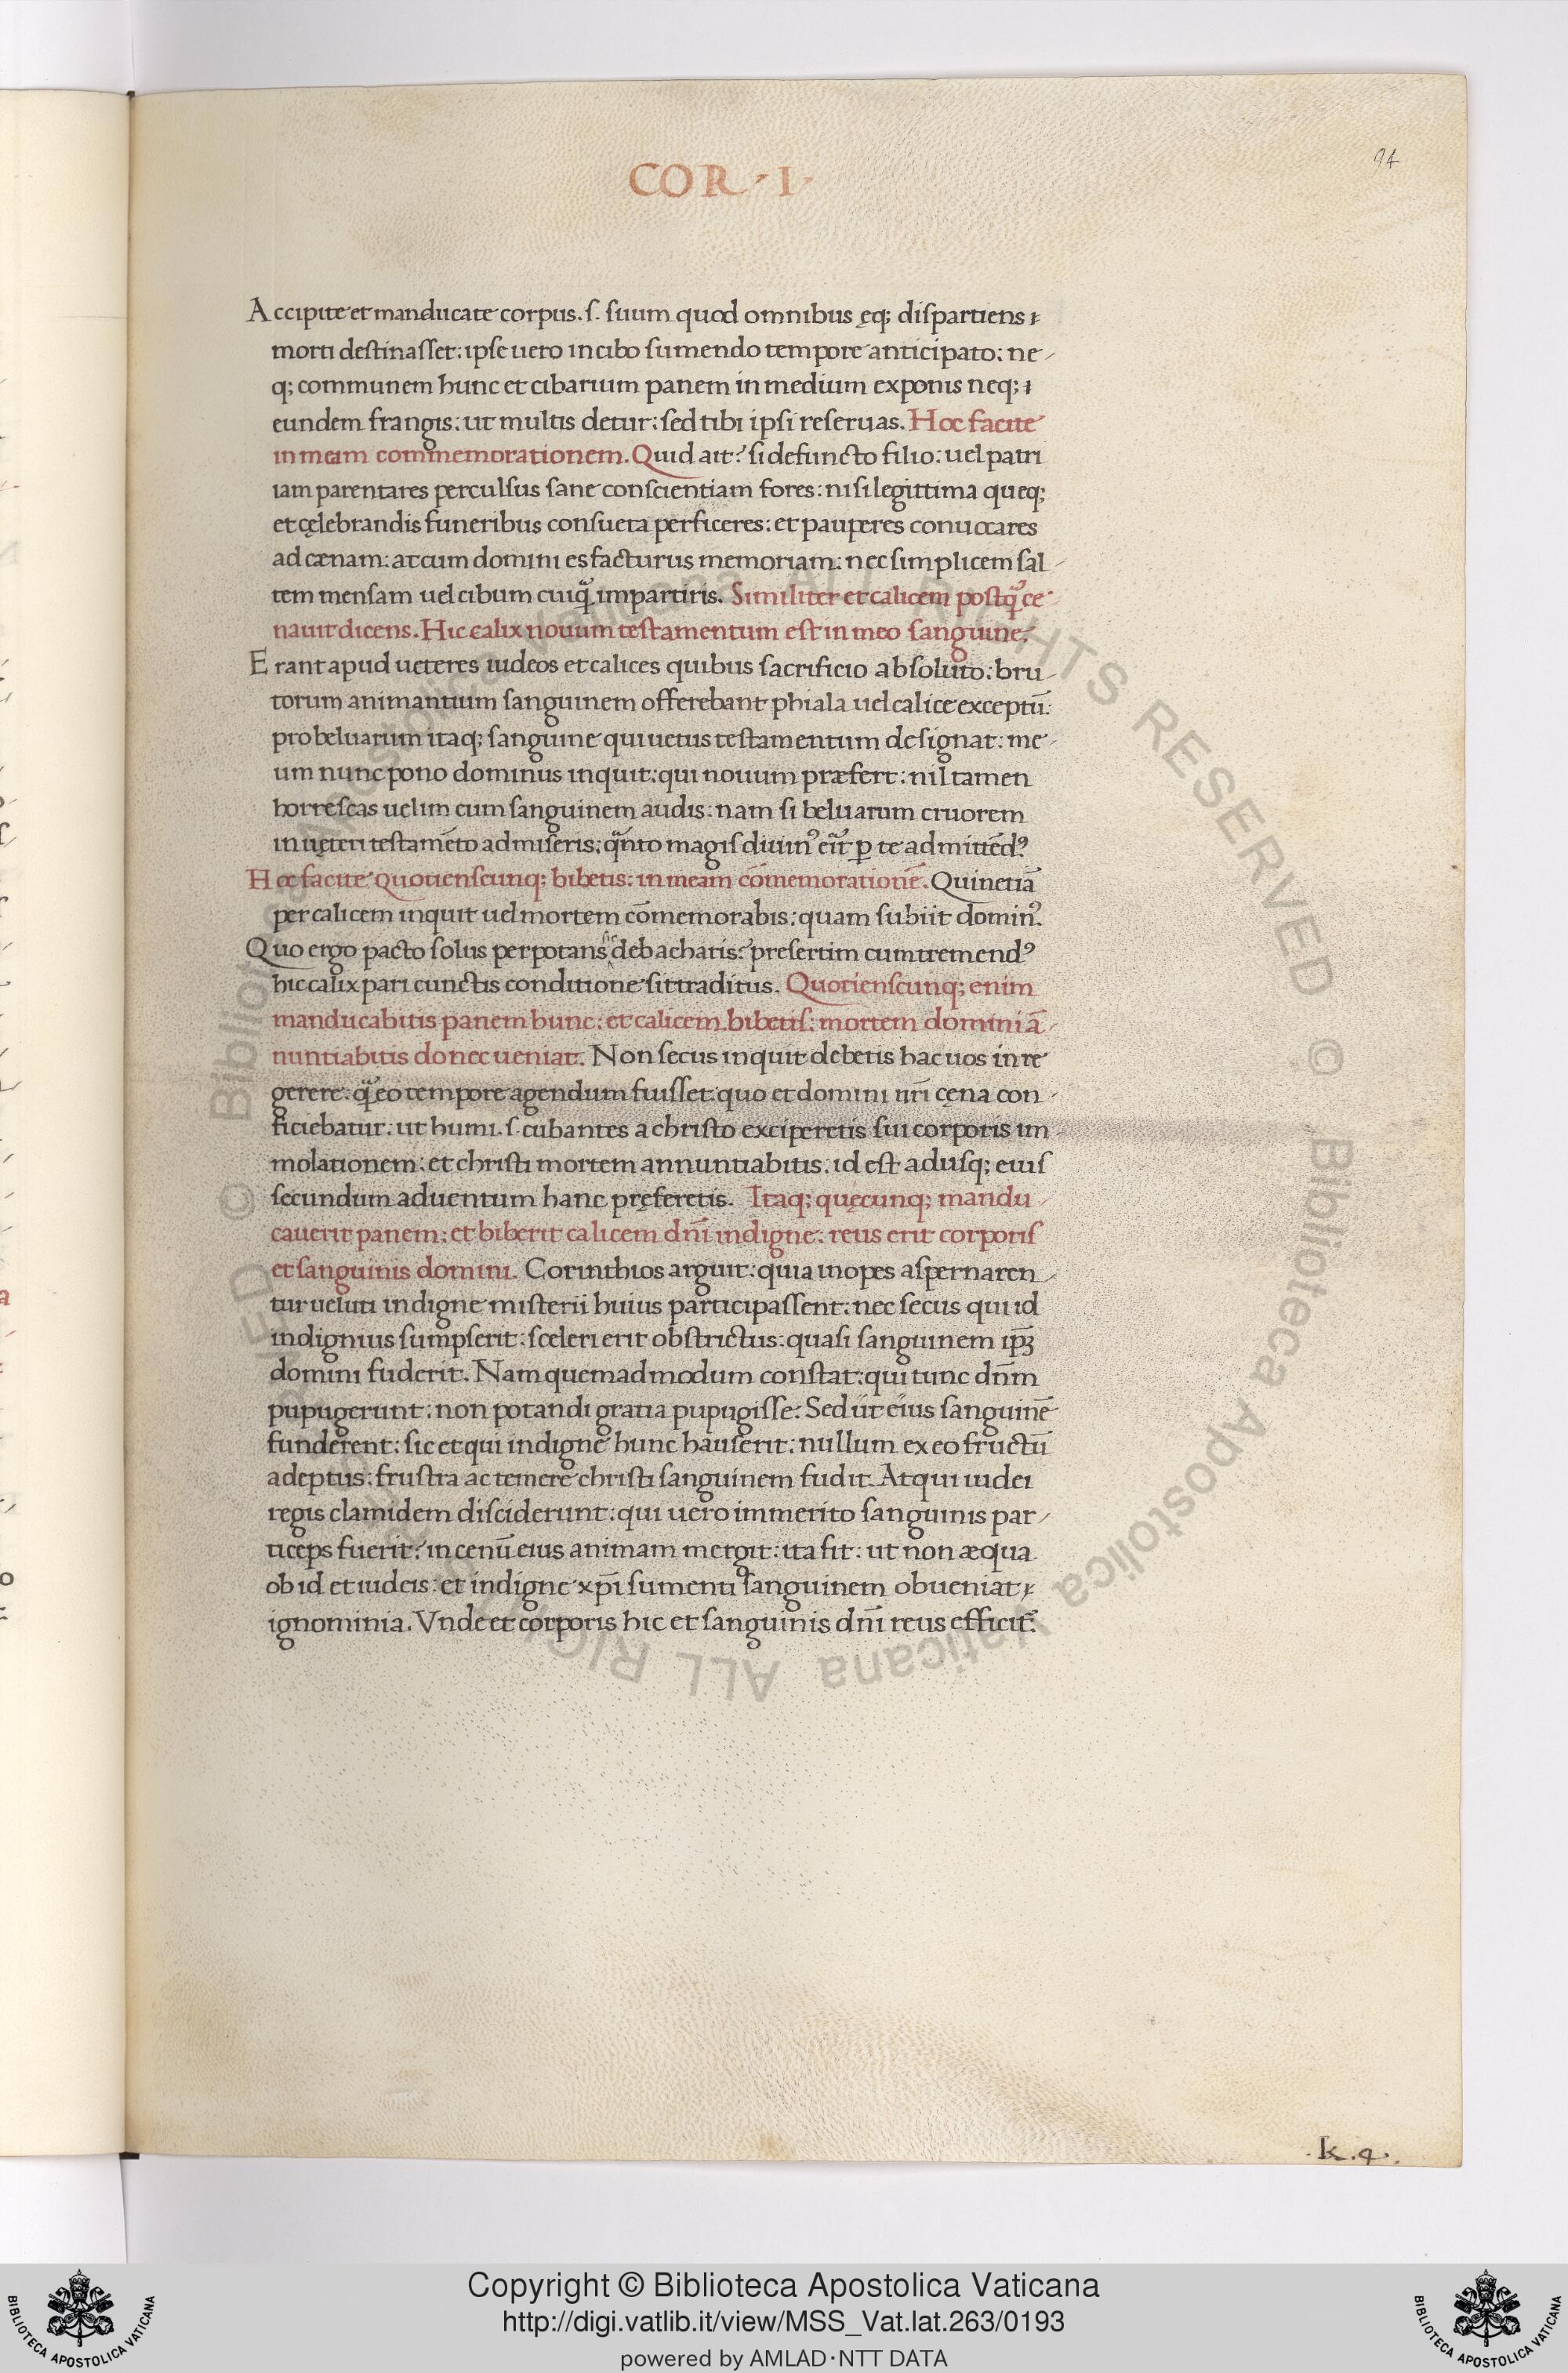 COR · I ·
94
Accipite et manducate corpus .s. suum quod omnibus ęq; dispartiens
morti destinasset: ipse uero in cibo sumendo tempore anticipato: ne
q; communem hunc et cibarium panem in medium exponis neq;
eundem frangis: ut multis detur: sed tibi ipsi reseruas. Hoc facite
in meam commemorationem. Quid ait? si defuncto filio: uel patri
iam parentares perculsus sane conscientiam fores: nisi legittima queq;
et cęlebrandis funeribus consueta perficeres: et pauperes conuocares
ad cænam: at cum domini es facturus memoriam: nec simplicem sal
tem mensam uel cibum cuiq̃ impartiris. Similiter et calicem postq̃ ce
nauit dicens. Hic calix nouum testamentum est in meo sanguine.
Erant apud ueteres iudeos et calices quibus sacrificio absoluto: bru
torum animantium sanguinem offerebant phiala uel calice exceptū:
pro beluarum itaq; sanguine qui uetus testamentum designat: me
um nunc pono dominus inquit: qui nouum præfert: nil tamen
horrescas uelim cum sanguinem audis: nam si beluarum cruorem
in ueteri testamēto admiseris: q̃nto magis diuinꝰ erit̃ ꝑ te admittēdꝰ
Hoc facite quotienscunq; bibetis: in meam cōmemorationē. Quinetiā
per calicem inquit uel mortem cōmemorabis: quam subiit dominꝰ.
Quo ergo pacto solus perpotans debacharis? presertim cum tremendꝰ
hic calix pari cunctis conditione sit traditus. Quotienscunq; enim
manducabitis panem hunc: et calicem bibetis: mortem domini ā
nuntiabitis donec ueniat. Non secus inquit debetis hac uos in re
gerere: q̃ eo tempore agendum fuisset quo et domini nr̄i cęna con
ficiebatur: ut humi .s. cubantes a christo exciperetis sui corporis im
molationem: et christi mortem annuntiabitis: id est adusq; eius
secundum aduentum hanc pręferetis. Itaq; quęcunq; mandu
cauerit panem: et biberit calicem dn̄i indigne: reus erit corporis
et sanguinis domini. Corinthios arguit: quia inopes aspernaren
tur ueluti indigne misterii huius participassent: nec secus qui id
indignius sumpserit: sceleri erit obstrictus: quasi sanguinem ip̄ꝫ
domini fuderit. Nam quemadmodum constat: qui tunc dn̄m
pupugerunt: non potandi gratia pupugisse: Sed ut eius sanguinē
funderent: sic et qui indigne hunc hauserit: nullum ex eo fructū
adeptus: frustra ac temere christi sanguinem fudit. Atqui iudei
regis clamidem disciderunt: qui uero immerito sanguinis par
ticeps fuerit? in cenū eius animam mergit: ita fit: ut non æqua
ob id et iudeis: et indigne xp̄i sumenti sanguinem obueniat
ignominia. Vnde et corporis hic et sanguinis dn̄i reus efficit᷑.
.k.q.
Copyright © Biblioteca Apostolica Vaticana
http://digi.vatlib.it/view/MSS_Vat.lat.263/0193
powered by AMLAD·NTT DATA